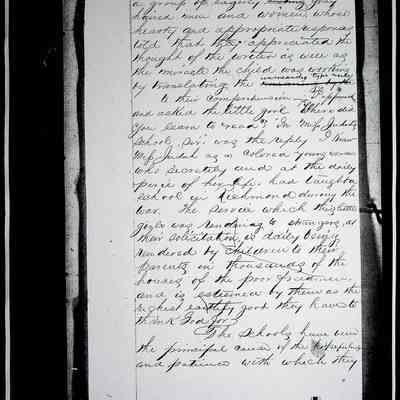 a group of eagerly gray
haired men and women whose
hearty and appropriate responses
told that they appreciated the
thought of the writer as well as
the miracle the child was working
by translating the
to their comprehension. I stopped
and asked the little girl "Where did
you learn to read?" "In Miss Judahs
school, Sir." was the reply. I knew
Miss Judah as a colored young woman
who secretly and at the daily
peril of her life had taught a
school in Richmond during the
war. The service which this little
girl was rendering to strangers, at
their solicitation, is daily being
rendered by children to their
parents in thousands of the
houses of the poor freedmen,
and is esteemed by them as the
highest earthly good they have to
thank God for.
The schools have been
the principal cause of the hopefulness
and patience with which they